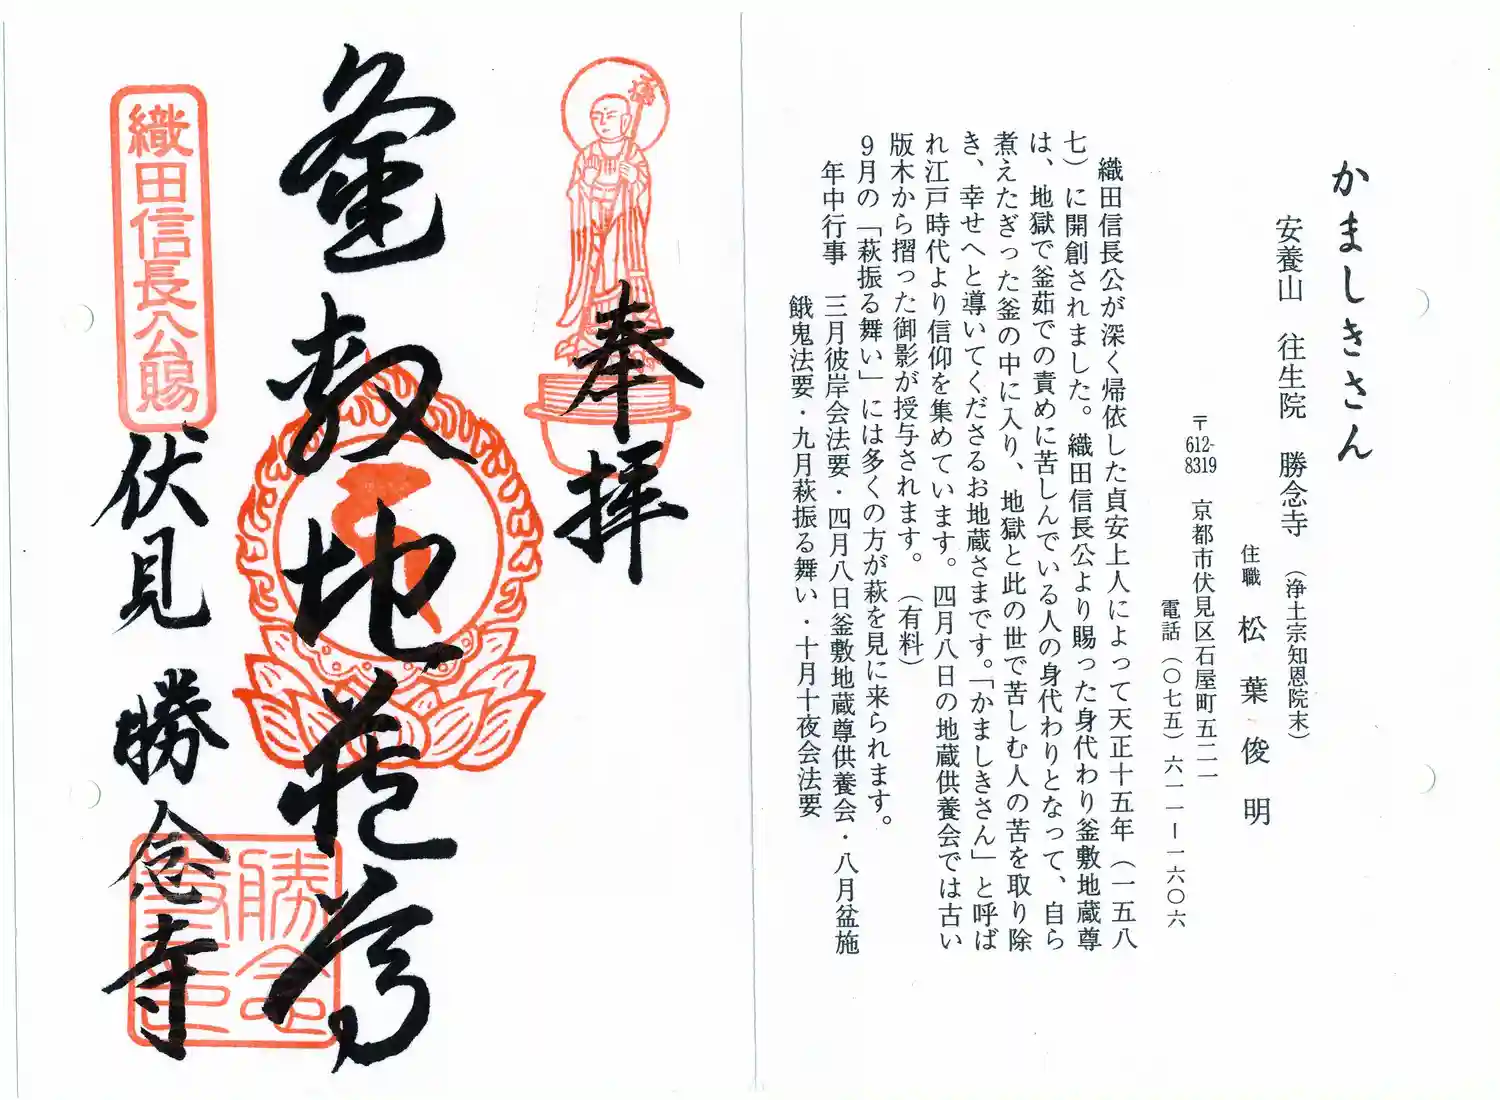 かましきさん
安養山　往生院　勝念寺　（浄土宗知恩院末）
住職　松葉俊明
〒612-8319　京都市伏見区石屋町五二一
電話（〇七五）六一一ー一六〇六
織田信長公が深く帰依した貞安上人によって天正十五年（一五八
七）に開創されました。織田信長公より賜った身代わり釜敷地蔵尊
は、地獄で釜茹での責めに苦しんでいる人の身代わりとなって、自ら
煮えたぎった釜の中に入り、地獄と此の世で苦しむ人の苦を取り除
き、幸せへと導いてくださるお地蔵さまです。「かましきさん」と呼ば
れ江戸時代より信仰を集めています。四月八日の地蔵供養会では古い
版木から摺った御影が授与されます。（有料）
９月の「萩振る舞い」には多くの方が萩を見に来られます。
年中行事　三月彼岸会法要・四月八日釜敷地蔵尊供養会・八月盆施
餓鬼法要・九月萩振る舞い・十月十夜会法要
奉拝
釜敷地蔵尊
織田信長公賜
伏見　勝念寺
勝念
寺印